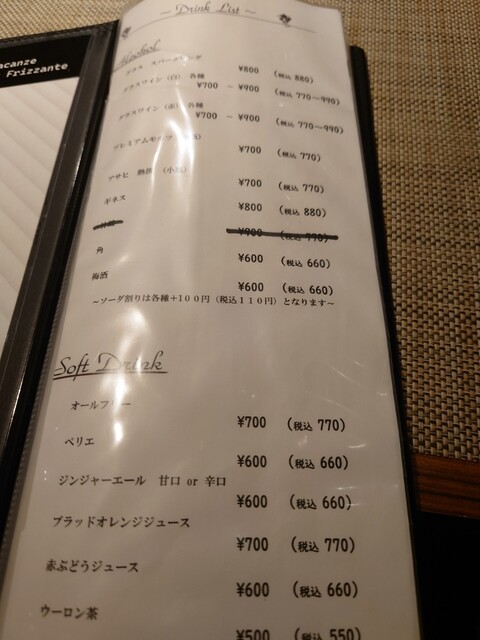 acanze
Frizzante
~ Drink List ~
Alcohol
グラス スパークリング ¥800 (税込 880)
グラスワイン (白) 各種 ¥700 ~ ¥900 (税込 770~990)
グラスワイン (赤) 各種 ¥700 ~ ¥900 (税込 770~990)
プレミアムモルツ ¥700 (税込 770)
アサヒ 熟撰 (小瓶) ¥700 (税込 770)
ギネス ¥800 (税込 880)
¥700 (税込 770)
角 ¥600 (税込 660)
梅酒 ¥600 (税込 660)
~ソーダ割りは各種+100円(税込110円)となります~
Soft Drink
オールフリー ¥700 (税込 770)
ペリエ ¥600 (税込 660)
ジンジャーエール 甘口 or 辛口 ¥600 (税込 660)
ブラッドオレンジジュース ¥700 (税込 770)
赤ぶどうジュース ¥600 (税込 660)
ウーロン茶 ¥500 (税込 550)